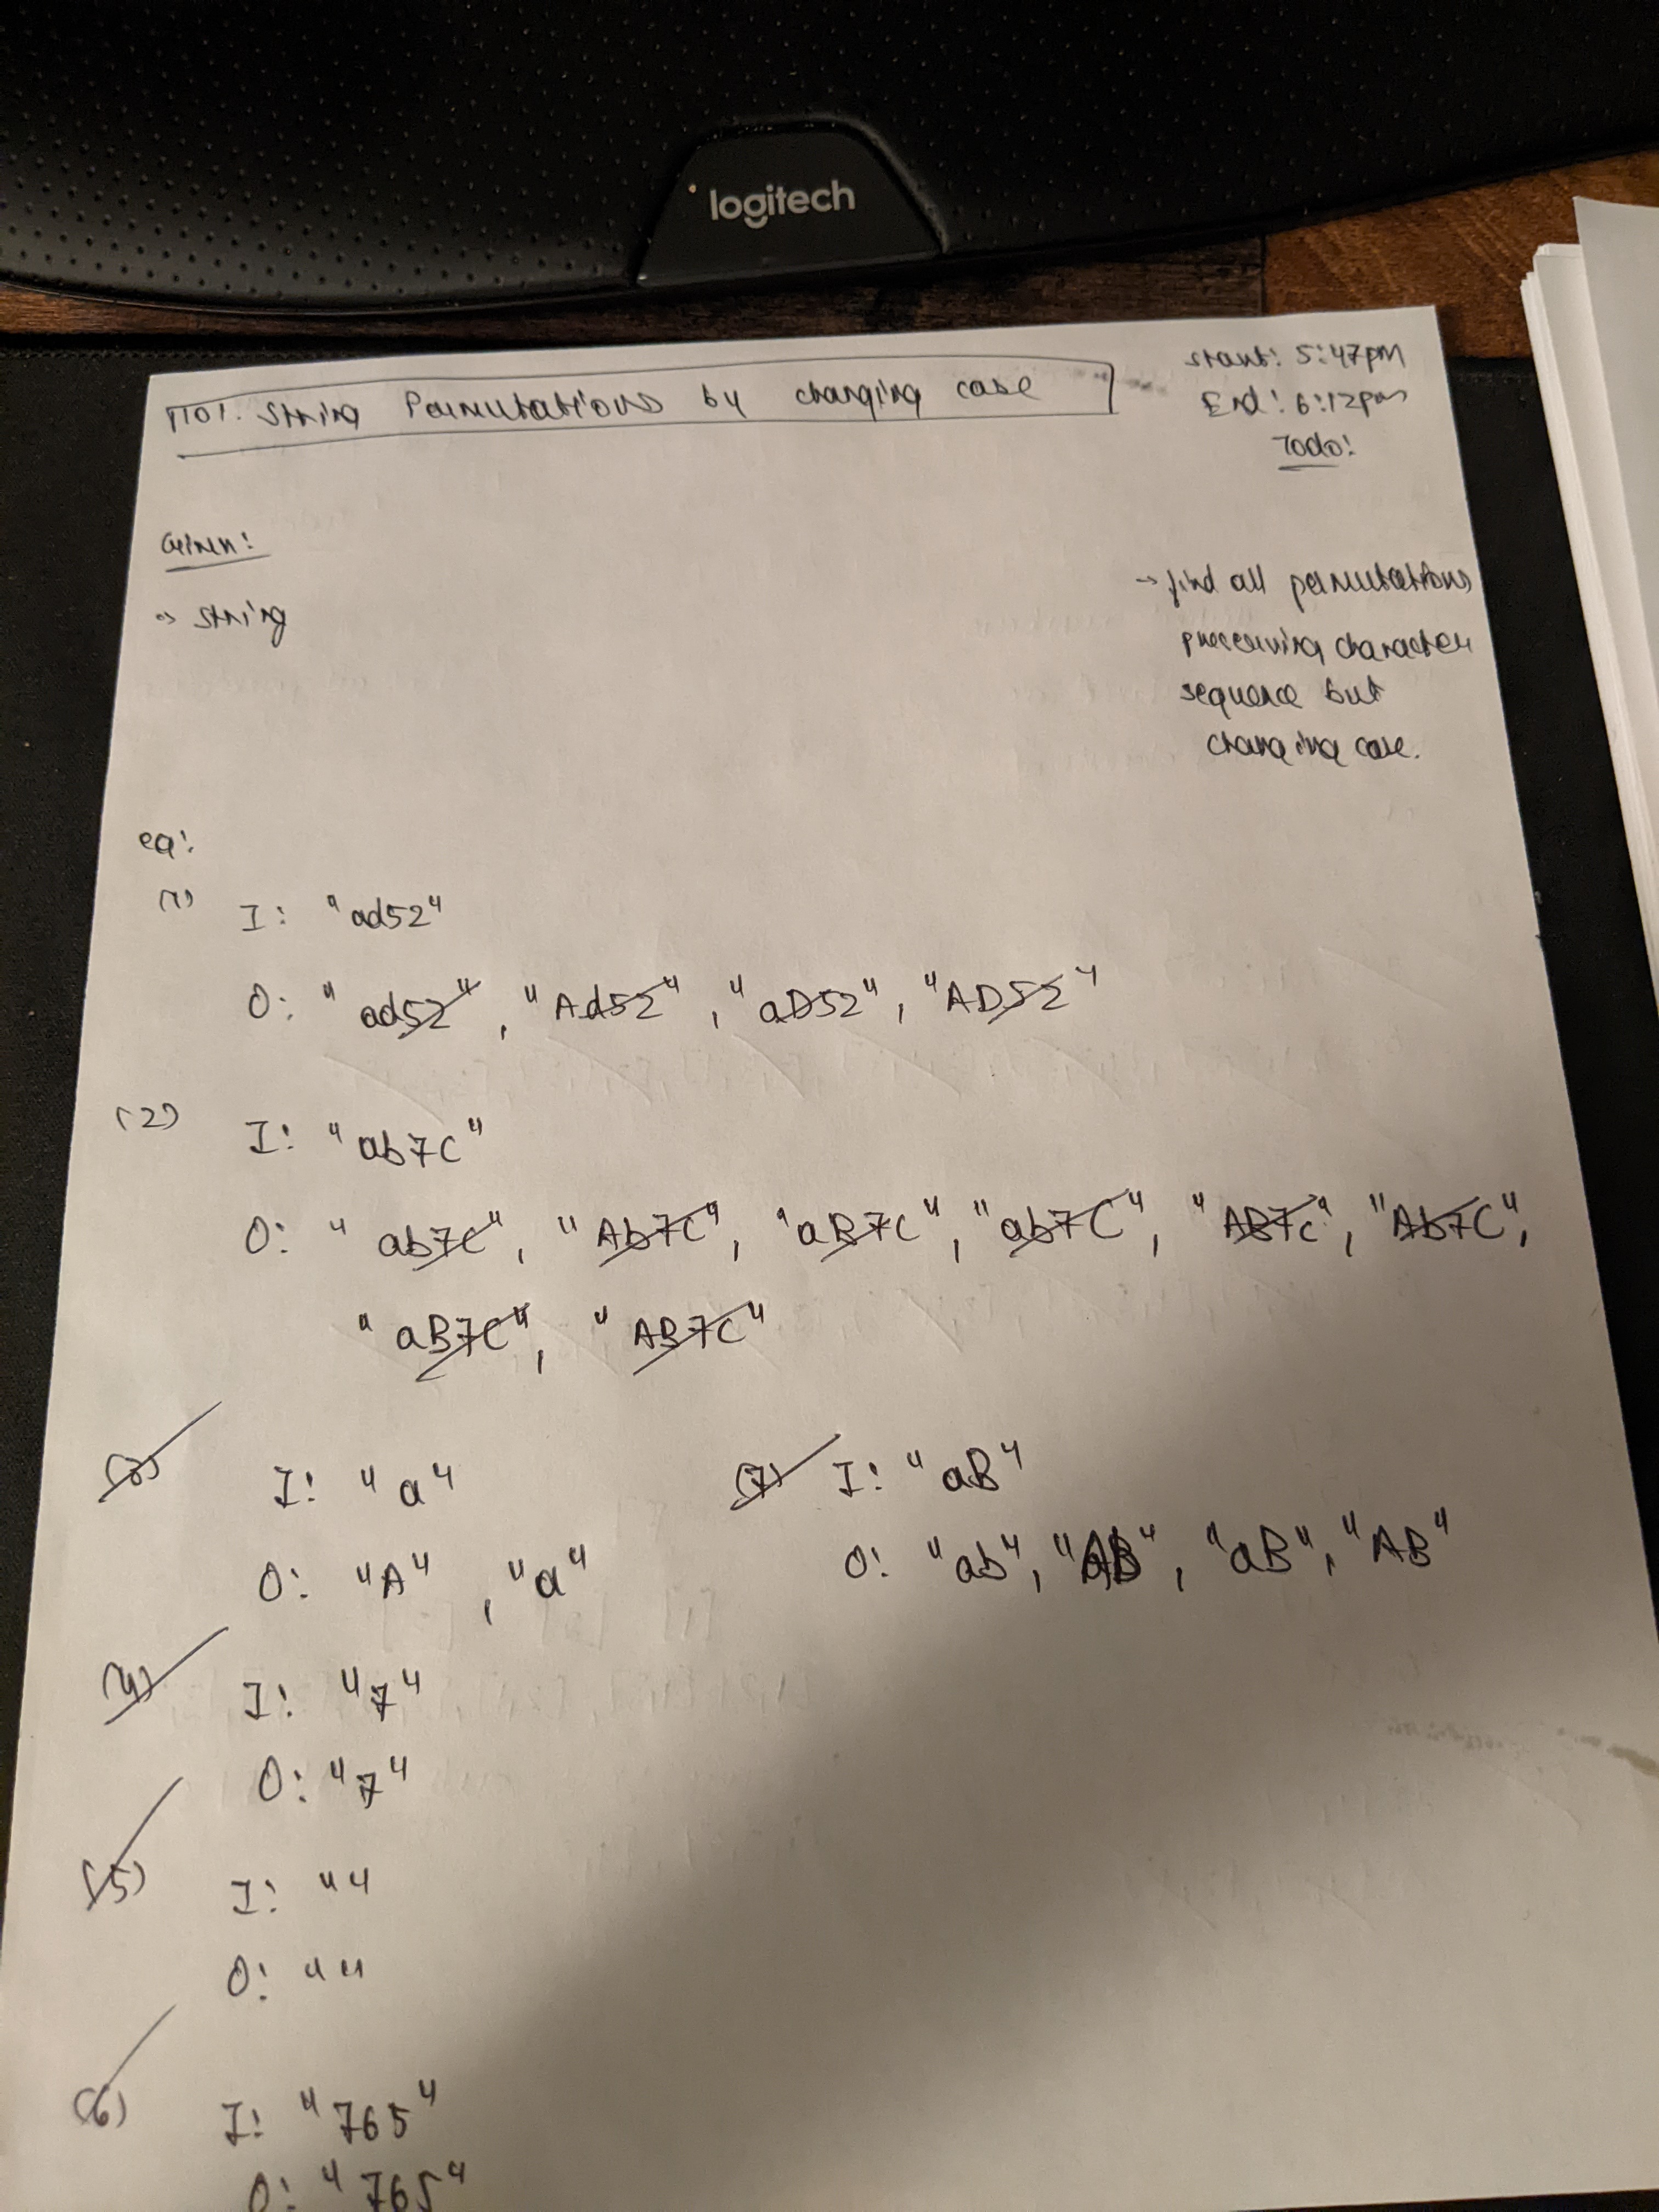 logitech
String Permutations by changing case
Start: 5:47pm
End: 6:12pm
Todo:
Given:
→ string
→ find all permutations
preserving character
sequence but
changing case.
eg:
(1) I: "ad52"
O: "ad52", "Ad52", "aD52", "AD52"
(2) I: "ab7c"
O: "ab7c", "Ab7c", "aB7c", "ab7C", "AB7c", "Ab7C",
"aB7C", "AB7C"
(3) I: "a"
O: "A", "a"
(7) I: "aB"
O: "ab", "AB", "aB", "AB"
(4) I: "7"
O: "7"
(5) I: ""
O: ""
(6) I: "765"
O: "765"